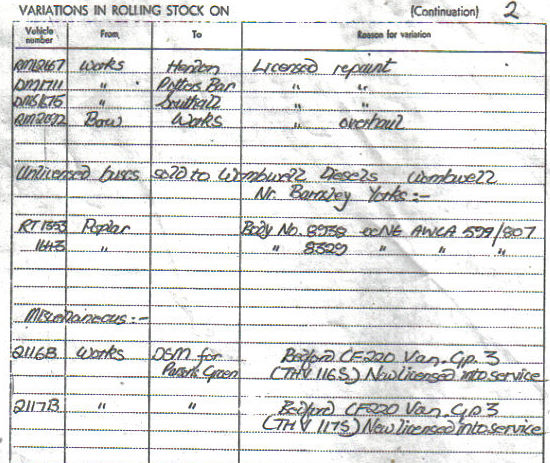 VARIATIONS IN ROLLING STOCK ON (Continuation) 2
Vehicle number From To Reason for variation
RM2167 Works Hendon Licensed repaint
DM1711 " Potters Bar " "
" Southall " "
Bow Works " overhaul
Unlicensed buses sold to Wombwell Diesels Wombwell
Nr. Barnsley Yorks :-
RT1353 Poplar Body No. 8938 AWCA 599/807
1643 " " 8329 " " "
Miscellaneous :-
2116B Works DSM for Bedford CF220 Van. Gp. 3
Parsons Green (THV 116S) New licensed into service
2117B " " Bedford CF220 Van. Gp 3
(THV 117S) New licensed into service